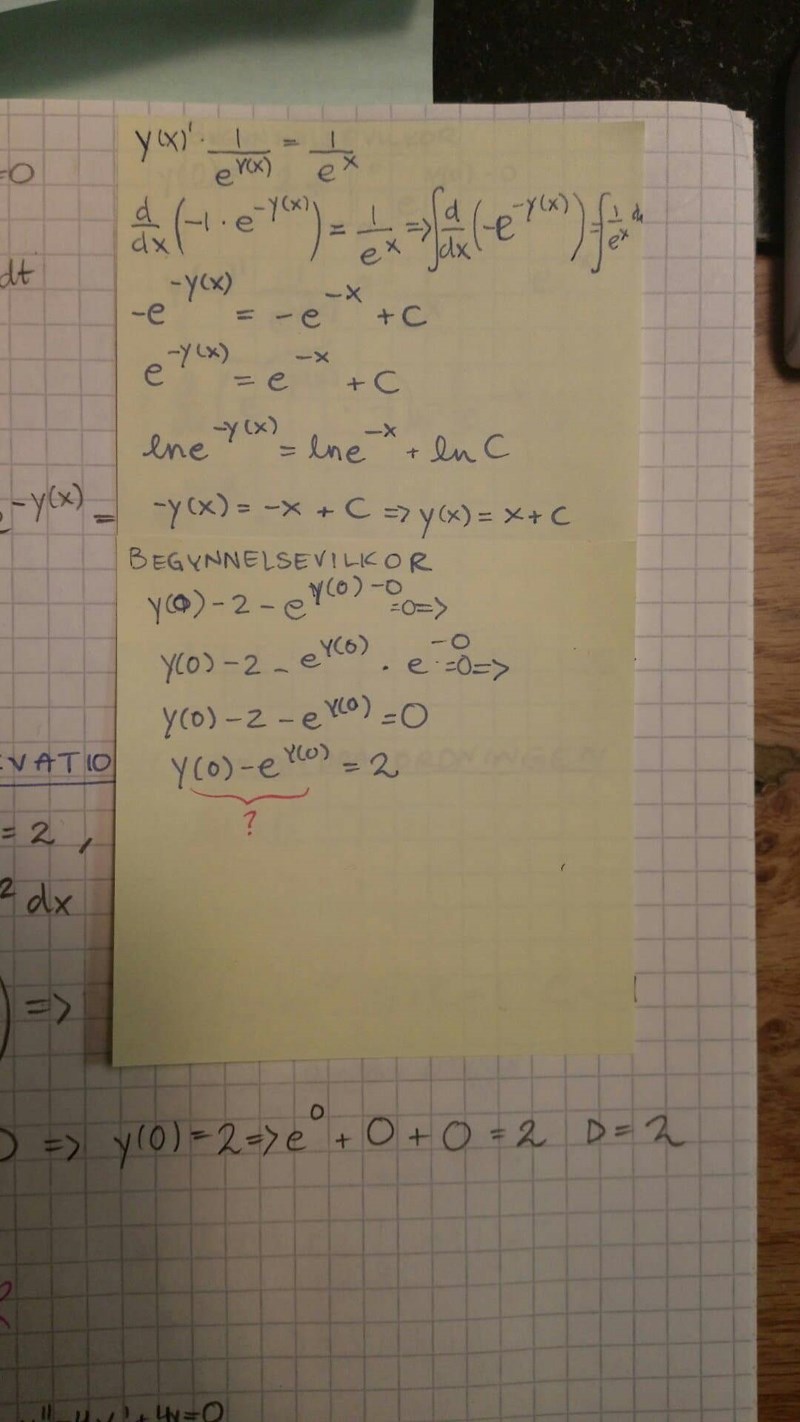 y(x)' · 1/e^{y(x)} = 1/e^x
=0
d/dx (-1 · e^{-y(x)}) = 1/e^x => ∫ d/dx (-e^{-y(x)}) = ∫ 1/e^x d
dt
-e^{-y(x)} = -e^{-x} + C
e^{-y(x)} = e^{-x} + C
ln e^{-y(x)} = ln e^{-x} + ln C
-y(x) =
-y(x) = -x + C => y(x) = x + C
BEGYNNELSEVILKOR
y(0) - 2 - e^{y(0)-0} =0=>
y(0) - 2 - e^{y(0)} · e^{-0} =0=>
y(0) - 2 - e^{y(0)} = 0
VATIO
y(0) - e^{y(0)} = 2
?
= 2 ,
2 dx
) =>
=> y(0) = 2 => e^0 + 0 + 0 = 2 D = 2
=0